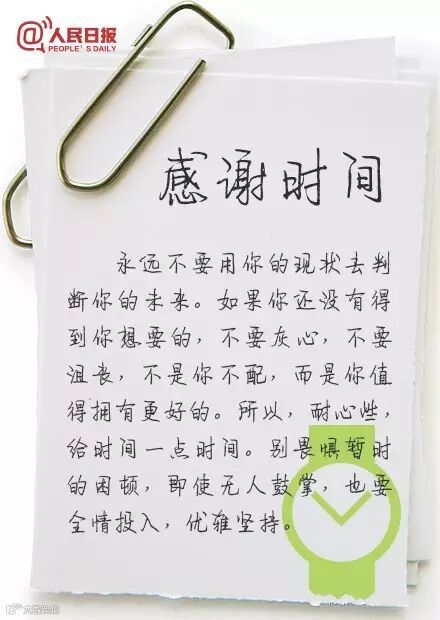 @人民日报
PEOPLE'S DAILY
感谢时间
永远不要用你的现状去判
断你的未来。如果你还没有得
到你想要的，不要灰心，不要
沮丧，不是你不配，而是你值
得拥有更好的。所以，耐心些，
给时间一点时间。别畏惧暂时
的困顿，即使无人鼓掌，也要
全情投入，优雅坚持。